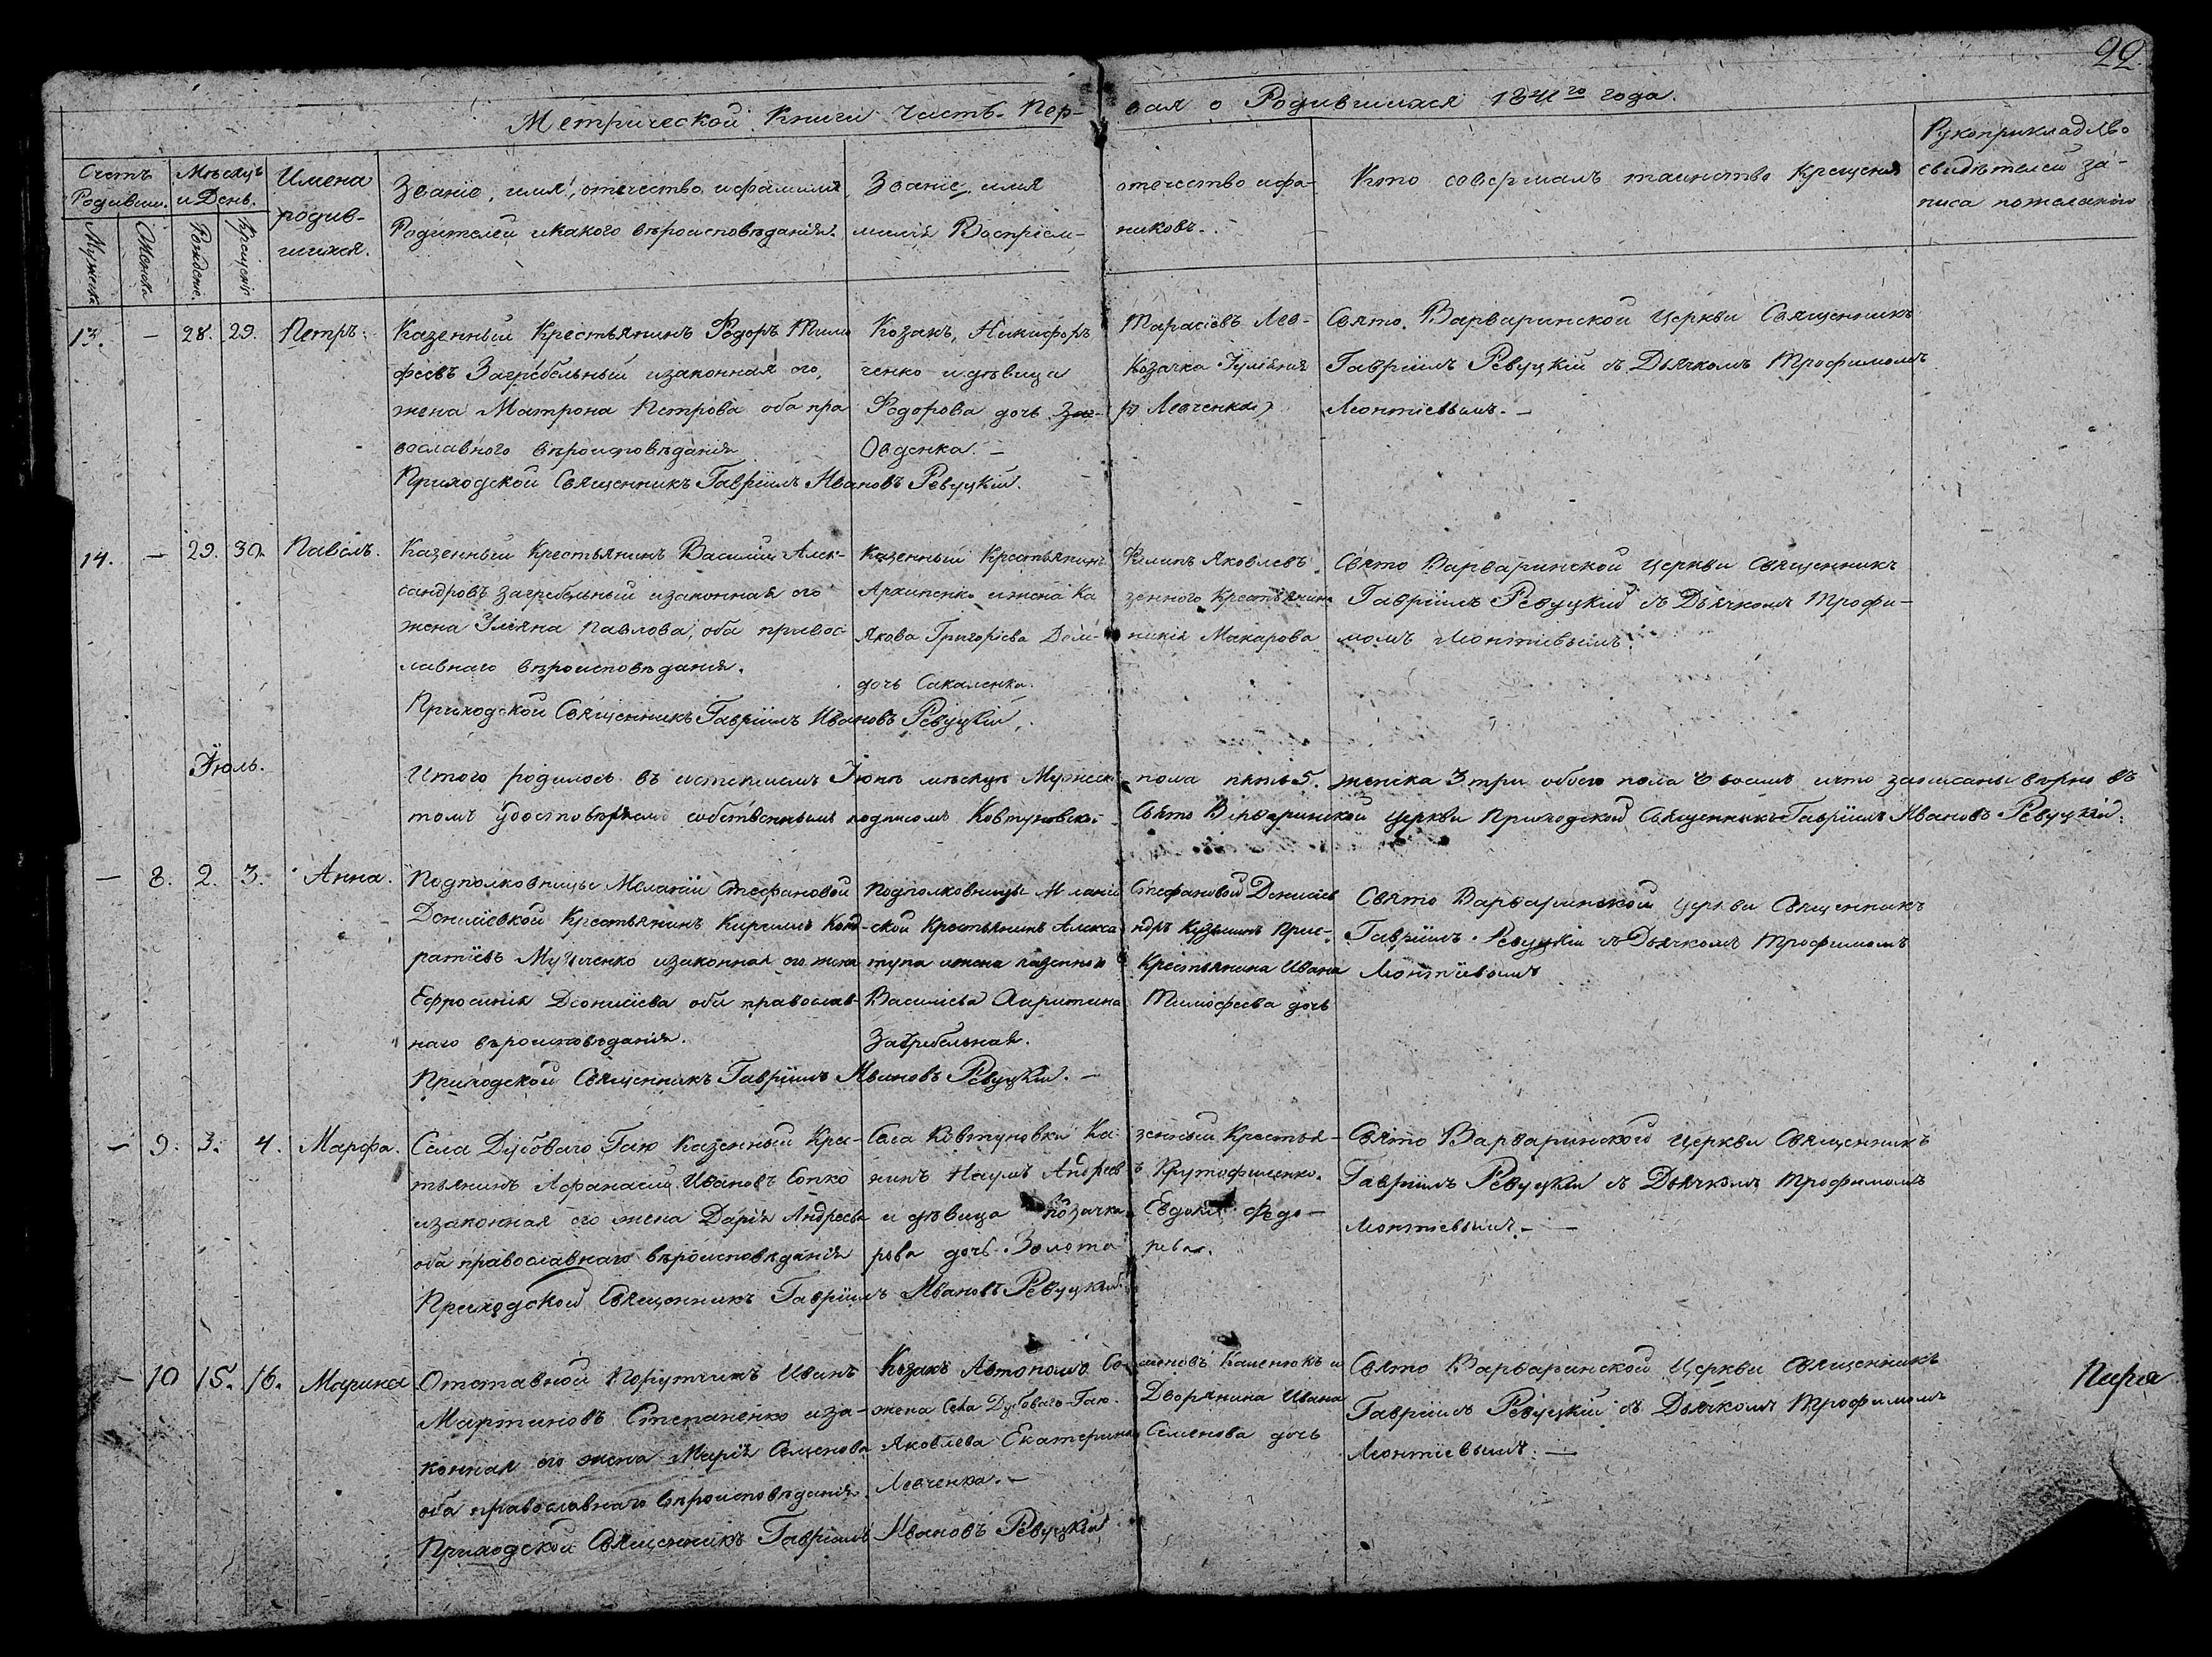 22.
Метрической Книги Часть Пер- вая о Родившихся 1841го года.
Счетъ Родивш.
Мужеска
Женска
Мѣсяцъ и День.
Рожденіе.
Крещеніе
Имена родив-
шихся.
Званіе, имя, отечество, и фамилія
Родителей и какого вѣроисповѣданія.
Званіе, имя отечество и фа-
милія Воспріем- никовъ.
Кто совершалъ таинство Крещенія
Рукоприкладство
свидѣтелей за-
писа по желанію
13. — 28. 29. Петръ.
Казенный Крестьянинъ Федоръ Тимо
феевъ Загребельный и законная его,
жена Матрона Петрова оба пра
вославного вѣроисповѣданія
Козакъ, Никифоръ Тарасіевъ Лев-
ченко и дѣвица Козачка Іуліянія
Федорова дочь Левченка)
Овденка. —
Свято Варваринской Церкви Священникъ
Гавріилъ Ревуцкій съ Дьячкомъ Трофимомъ
Леонтіевымъ. —
Приходской Священникъ Гавріилъ Ивановъ Ревуцкій.
14. — 29. 30. Павелъ.
Казенный Крестьянинъ Василій Алек-
сандровъ Загребельный и законная его
жена Уліяна Павлова, оба правос
лавнаго вѣроисповѣданія.
Казенный Крестьянинъ Филипъ Яковлевъ
Архипенко и жена Ка зенного Крестьянина
Якова Григоріева Дом- никія Макарова
дочь Сакаленка.
Свято Варваринской Церкви Священникъ
Гавріилъ Ревуцкій съ Дьячкомъ Трофи-
момъ Леонтіевымъ.
Приходской Священникъ Гавріилъ Ивановъ Ревуцкій.
Іюль.
Итого родилось въ истекшемъ Іюнѣ мѣсяцѣ Мужеска пола пять 5. женска 3 три обоего пола 8 восемь и что записаны вѣрно въ
томъ удостовѣряемъ собственнымъ подписомъ Ковтуновской Свято Варваринской Церкви Приходской Священникъ Гавріилъ Ивановъ Ревуцкій.
— 8. 2. 3. Анна.
Подполковницы Меланіи Стефановой
Денисіевкой Крестьянинъ Кирилъ Конд-
ратіевъ и законная его жена
Ефросинія Дионисіева оба православ-
наго вѣроисповѣданія.
Подполковницы Меланіи Стефановой Денисіев
ской Крестьянинъ Алекса ндръ Кузьминъ Прис-
тупа и жена казенного Крестьянина Ивана
Василіева Тимофеева дочь
Загребельная.
Свято Варваринской Церкви Священникъ
Гавріилъ Ревуцкій съ Дьячкомъ Трофимомъ
Леонтіевымъ
Приходской Священникъ Гавріилъ Ивановъ Ревуцкій. —
— 9. 3. 4. Марфа.
Села Дубоваго Гаю Казенный Крес-
тьянинъ Афанасій Ивановъ Сопко
и законная его жена Дарія Андреева
оба православнаго вѣроисповѣданія
Села Ковтуновки Ка зенный Крестья-
нинъ Наумъ Андреев ъ Крутофиленко.
и дѣвица Козачка Евдокія Федо-
рова дочь Золота рева.
Свято Варваринской Церкви Священникъ
Гавріилъ Ревуцкій съ Дьячкомъ Трофимомъ
Леонтіевымъ. —
Приходской Священникъ Гавріилъ Ивановъ Ревуцкій
— 10 15. 16. Марина
Отставной Порутчикъ Иванъ
Мартиновъ Степаненко и за-
конная его жена Марія Семенова
оба православнаго вѣроисповѣданія
Козакъ Автономъ Каленюкъ и
жена Села Дубоваго-Гаю. Дворянина Ивана
Яковлева Екатерина Семенова дочь
Левченка. —
Свято Варваринской Церкви Священникъ
Гавріилъ Ревуцкій съ Дьячкомъ Трофимомъ
Леонтіевымъ. —
Приходской Священникъ Гавріилъ Ивановъ Ревуцкій